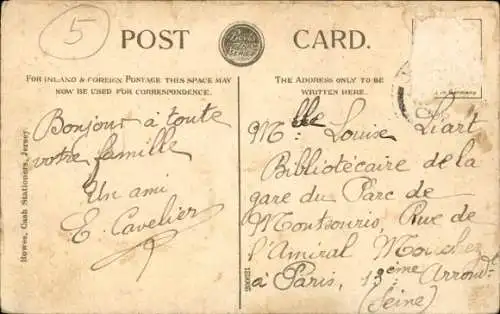 5
POST CARD.
FOR INLAND & FOREIGN POSTAGE THIS SPACE MAY
NOW BE USED FOR CORRESPONDENCE.
THE ADDRESS ONLY TO BE
WRITTEN HERE.
Bonjour à toute
votre famille
Un ami
E. Cavelier
Howes, Cash Stationers, Jersey
Mlle Louise Liart
Bibliotécaire de la
gare du Parc de
Montsouris, Rue de
l'Amiral Mouchez
à Paris, 13ème Arrondt
(Seine)